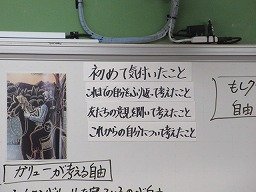 初めて気付いたこと
これまでの自分をふり返って考えたこと
友だちの意見を聞いて考えたこと
これからの自分について考えたこと
もしク
自由
ガリューが考える自由